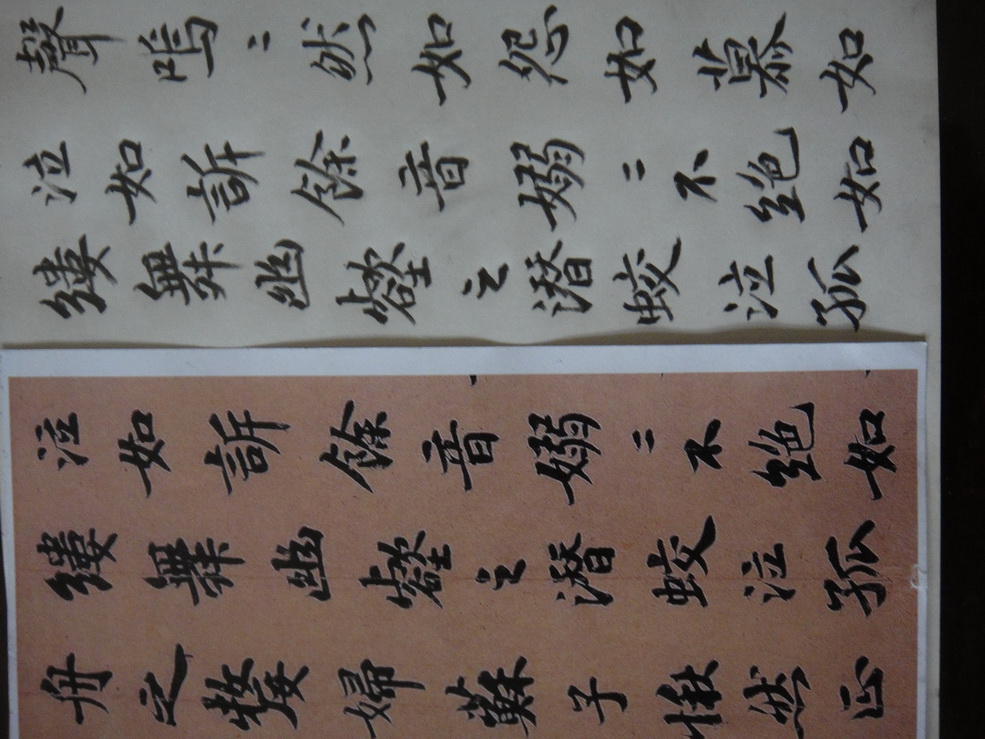 聲嗚〻然如怨如慕如
泣如訴餘音嫋〻不絶如
縷舞幽壑之潛蛟泣孤
泣如訴餘音嫋〻不絶如
縷舞幽壑之潛蛟泣孤
舟之嫠婦蘇子愀然正